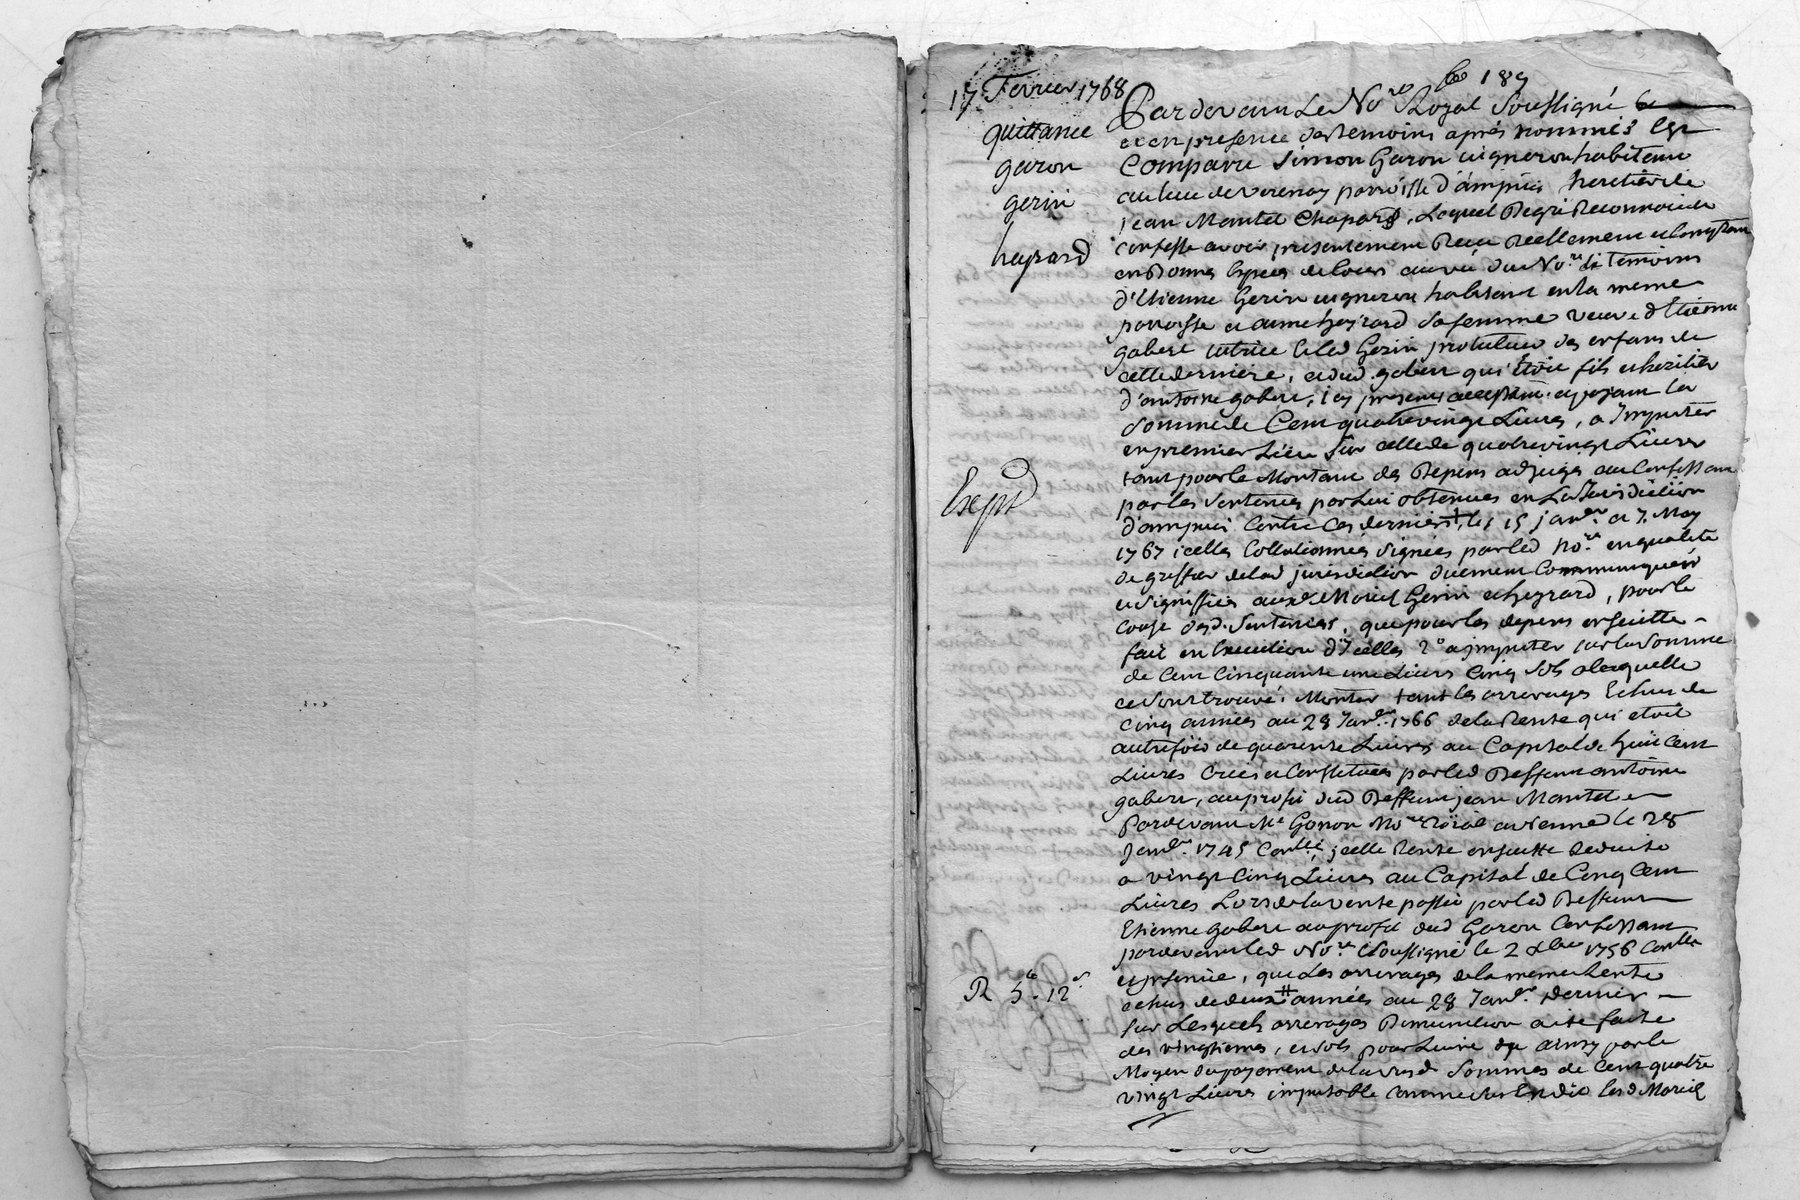 189
17 Fevrier 1768
quittance
garon
gerin
heyrard
Expd
R 5 12s
Pardevant Le Nore Royal Soussigné
et en presence des temoins après nommés Est
Comparu Simon Garon vigneron habitant
au lieu de verenay parroisse d'ampuis heritier de
jean Mantel Chapard, Lequel De gré Reconnoit
confesse avoir presentement Receu Reellement et
en Bonnes Especes de Cours au vu dud Nore & temoins
d'Etienne Gerin vigneron habitant en la meme
parroisse et anne heyrard sa femme veuve d'Etienne
gabert tutrice & led Gerin protuteur des enfans de
cette derniere, et dud gabert qui étoit fils et heritier
d'antoine gabert, icy presens acceptant et payant la
Somme de Cent quatre vingt Livres, a Imputer
en premier Lieu Sur celle de quatre vingt Livres
tant pour le Montant des Depens adjugés au Confessant
par les Sentences par Lui obtenues en La Jurisdiction
d'ampuis Contre Ces derniers, les 15 janer et 7 May
1767 icelles Collationnées Signées par led Nore en qualité
de greffier de lad jurisdiction duement Communiquées
et Signiffiées auxd. Mariés Gerin et heyrard, pour le
Cause desd. Sentences, que pour les depens ensuitte
fait en Execution d'icelles 2° a jmputer sur la Somme
de Cent Cinquante une Livres Cinq Sols a laquelle
se Sont trouvé Monter tant les arrerages Echus de
Cinq années au 28 Janer 1766 de la Rente qui etoit
autrefois de quarente Livres au Capital de huit Cent
Livres Créé et Constituée par led Deffunt antoine
gabert, au profit dud Deffunt jean Mantel
Pardevant Me Gonon Nore Roïal a vienne le 28
Janer 1745 Contlé, jcelle Rente ensuitte Reduite
a vingt Cinq Livres au Capital de Cinq Cent
Livres Lors de la vente passée par led Deffunt
Etienne gabert au profit dud Garon Confessant
pardevant led Nore Soussigné le 2 xbre 1756 Contlée
, que Les arrerages de la meme Rente
echus de deux années au 28 Janer dernier
Sur Lesquels arrerages Diminution a été faite
des vingtiemes, et Sols pour Livre au moyen
Moyen du payement de la susd Sommes de Cent quatre
vingt Livres imputable comme dit Lesd Mariés